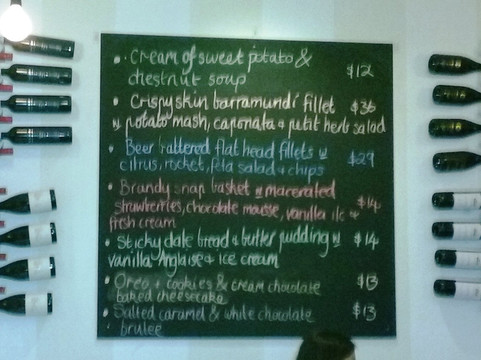 • Cream of sweet potato &
chestnut soup $12
• Crispy skin barramundi fillet $36
w potato mash, caponata & petit herb salad
• Beer battered flat head fillets w
citrus, rocket, feta salad & chips $29
• Brandy snap basket w macerated
strawberries, chocolate mousse, vanilla ice & $14
fresh cream
• Sticky date bread & butter pudding w $14
vanilla Anglaise & ice cream
• Oreo + cookies & cream chocolate $13
baked cheesecake
• Salted caramel & white chocolate $13
brulee